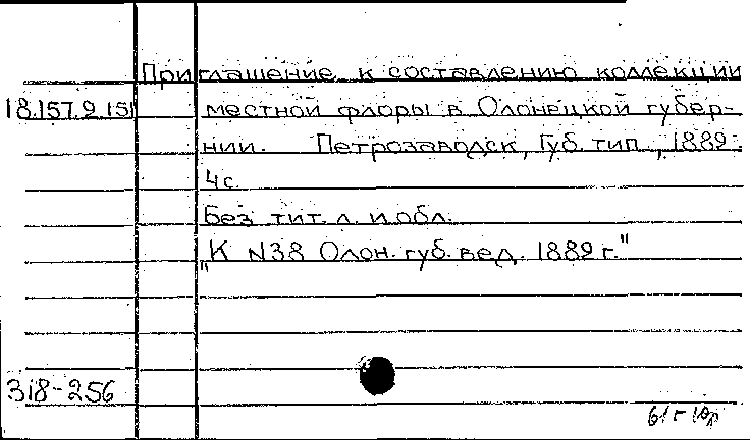 Приглашение к составлению коллекции
18.157.9.151 местной флоры в Олонецкой губер-
нии. Петрозаводск, Губ. тип., 1889.
4с.
Без тит. л. и обл.
„К N38 Олон. губ. вед. 1889 г."
318-256